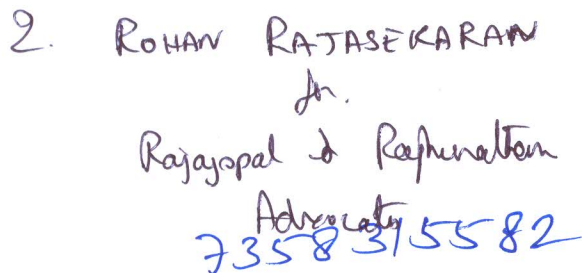 2. ROHAN RAJASEKARAN
for.
Rajagopal & Raghunathan
Advocates
7358315582